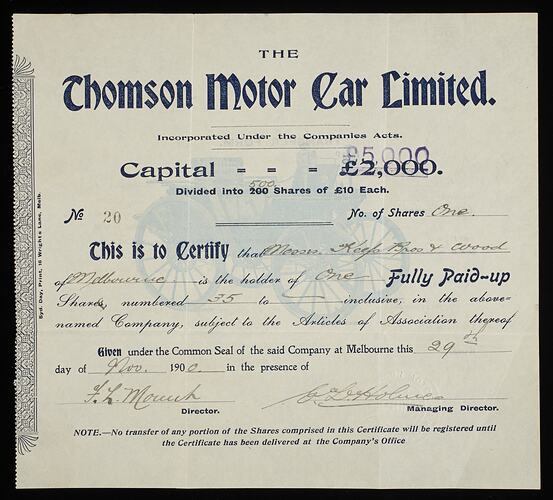 THE
Thomson Motor Car Limited.
Incorporated Under the Companies Acts.
£5,000
Capital = = = £2,000.
500
Divided into 200 Shares of £10 Each.
No 20 No. of Shares One.
This is to Certify that Messrs. Keep Bros & Wood
of Melbourne is the holder of One Fully Paid-up
Shares, numbered 35 to — inclusive, in the above=
named Company, subject to the Articles of Association thereof
Given under the Common Seal of the said Company at Melbourne this 29th
day of Nov. 1900. in the presence of
Director.
Managing Director.
NOTE.—No transfer of any portion of the Shares comprised in this Certificate will be registered until
the Certificate has been delivered at the Company's Office
Syd. Day, Print, 16 Wright's Lane, Melb.